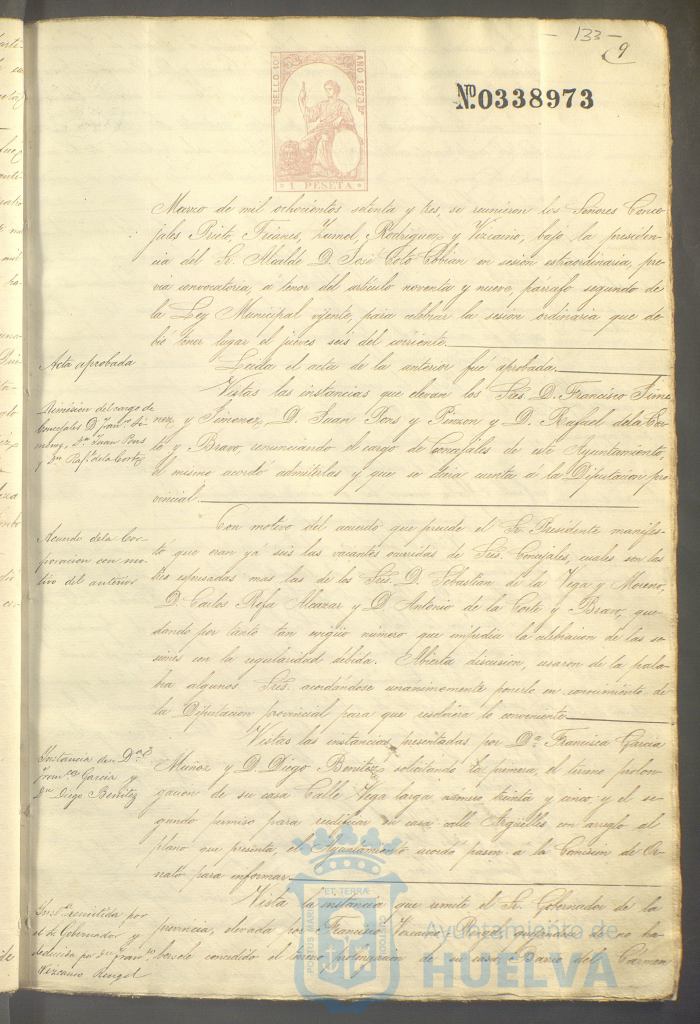 - 133 -
9
SELLO 10º AÑO 1873
1 PESETA
Nº 0338973
Marzo de mil ochocientos setenta y tres, se reunieron los Señores Conce-
jales Prieto, Frianes, Zumel, Rodriguez y Vizcaino, bajo la presiden-
cia del Sr. Alcalde D. José Coto Cobian en sesión estraordinaria, pre-
via convocatoria, a tenor del artículo noventa y nueve, parrafo segundo de
la Ley Municipal vijente, para celebrar la sesión ordinaria que de-
bió tener lugar el jueves seis del corriente.
Acta aprobada
Leida el acta de la anterior fué aprobada.
Dimision del cargo de
Concejales Dn. Franco. Ji-
menez, Dn. Juan Pons
y Dn. Rafl. de la Corte
Vistas las instancias que elevan los Sres. D. Francisco Jime-
nez y Jimenez, D. Juan Pons y Pinzon y D. Rafael de la Cor-
te y Bravo, renunciando el cargo de Concejales de este Ayuntamiento,
el mismo acordó admitirlas y que se diera cuenta á la Diputacion pro-
vincial.
Acuerdo de la Cor-
poracion con mo-
tivo del anterior
Con motivo del acuerdo que precede el Sr. Presidente manifes-
tó que eran ya seis las vacantes ocurridas de Sres. Concejales, cuales son las
tres espresadas mas las de los Sres. D. Sebastian de la Vega y Moreno,
D. Carlos Rofa Alcazar y D. Antonio de la Corte y Bravo, que-
dando por tanto tan exigüo número que impedia la celebracion de las se-
siones con la regularidad debida. Abierta discusion, usaron de la pala-
bra algunos Sres. acordándose unánimemente ponerlo en conocimiento de
la Diputacion provincial para que resolviera lo conveniente.
Instancia de Da.
Franca. Garcia y
Dn. Diego Benitez
Vistas las instancias presentadas por Da. Francisca Garcia
Muñoz y D. Diego Benitez, solicitando la primera, el terreno prolon-
gacion de su casa Calle Vega larga número treinta y cinco y el se-
gundo permiso para reedificar su casa calle Argüelles con arreglo al
plano que presenta, el Ayuntamiento acordó pasen a la Comision de Or-
nato para informar.
Insta. remitida por
el Sr. Gobernador y
deducida por Dn. Franco.
Vizcaino Rengel
Vista la instancia que remite el Sr. Gobernador de la
provincia, elevada por Francisco Vizcaino Rengel, quejandose de no ha-
bersele concedido el terreno prolongacion de su casa, Barrio del Carmen
Ayuntamiento de
HUELVA